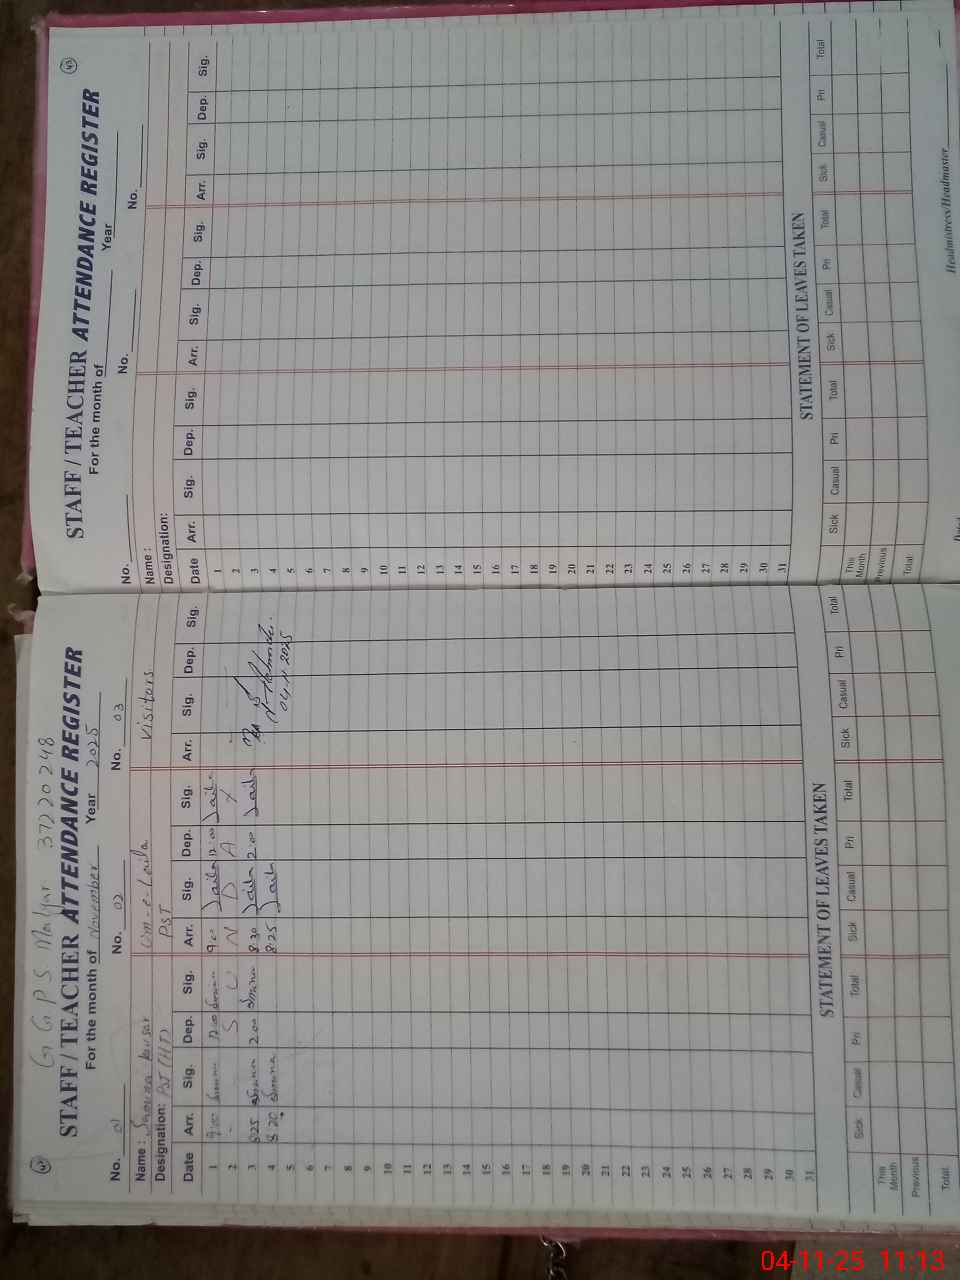 G G P S 37220248
STAFF / TEACHER ATTENDANCE REGISTER
For the month of November Year 2025
No. 01 No. 02 No. 03
Name : Kausar Um-e-Laila Visitors
Designation: PST (HT) PST
Date Arr. Sig. Dep. Sig. Arr. Sig. Dep. Sig. Arr. Sig. Dep. Sig.
1 9:00 12:00 9:00 Laila 12:00 Laila
2 S U N D A Y
3 8:25 2:00 8:30 Laila 2:00 Laila
4 8:20 8:25 Laila
04.11.2025
5
6
7
8
9
10
11
12
13
14
15
16
17
18
19
20
21
22
23
24
25
26
27
28
29
30
31
STATEMENT OF LEAVES TAKEN
Sick Casual Pri Total Sick Casual Pri Total Sick Casual Pri Total
This Month
Previous
Total
STAFF / TEACHER ATTENDANCE REGISTER
For the month of Year
No. No. No.
Name :
Designation:
Date Arr. Sig. Dep. Sig. Arr. Sig. Dep. Sig. Arr. Sig. Dep. Sig.
1
2
3
4
5
6
7
8
9
10
11
12
13
14
15
16
17
18
19
20
21
22
23
24
25
26
27
28
29
30
31
STATEMENT OF LEAVES TAKEN
Sick Casual Pri Total Sick Casual Pri Total Sick Casual Pri Total
This Month
Previous
Total
Headmistress/Headmaster
04-11-25 11:13